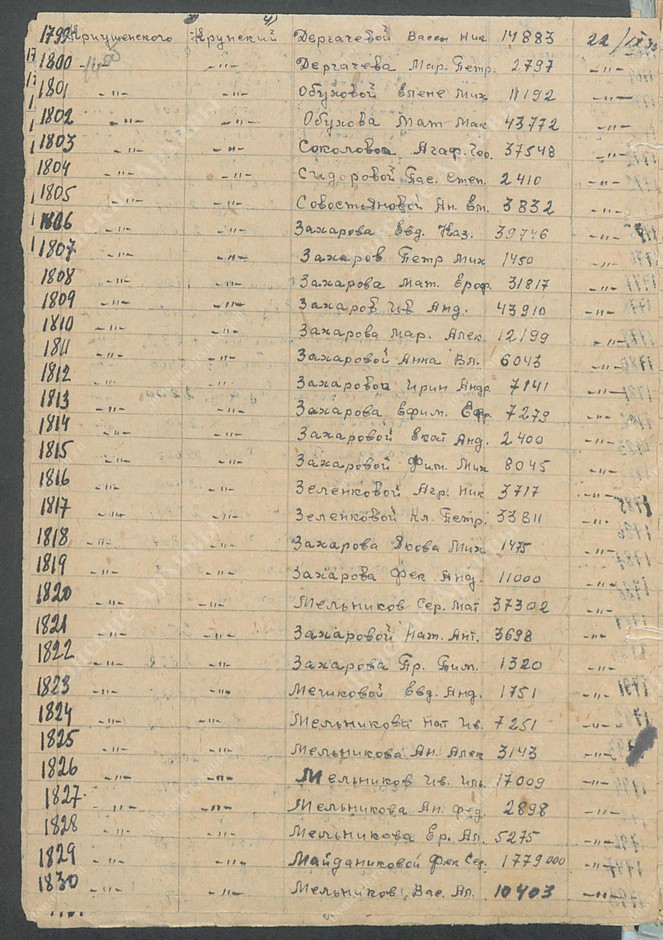 1799 Криушенского Крупский Дергачевой Вассы Ник 14883 22/IX 30
1800 -"- -"- Дергачева Мар. Петр. 2797 -"-
1801 -"- -"- Обуховой Елене Мих 11192 -"-
1802 -"- -"- Обухова Мат Мак 43772 -"-
1803 -"- -"- Соколовой Агаф. 37548 -"-
1804 -"- -"- Сидоровой Пас. Степ. 2410 -"-
1805 -"- -"- Совостьяновой Ан. 3832 -"-
1806 -"- -"- Захарова Евд. Наз. 39746 -"-
1807 -"- -"- Захаров Петр Мих 1450 -"-
1808 -"- -"- Захарова Мат. Ероф. 31817 -"-
1809 -"- -"- Захаров Ив Анд. 43910 -"-
1810 -"- -"- Захарова Мар. Алек 12199 -"-
1811 -"- -"- Захаровой Анна Вл. 6043 -"-
1812 -"- -"- Захаровой Ирин Андр 7141 -"-
1813 -"- -"- Захарова Ефим. 7279 -"-
1814 -"- -"- Захаровой Екат Анд. 2400 -"-
1815 -"- -"- Захаровой Фит. Мих 8045 -"-
1816 -"- -"- Зеленковой Агр. Ник 3717 -"-
1817 -"- -"- Зеленковой Кл. Петр. 33811 -"-
1818 -"- -"- Захарова Якова Мих 1475 -"-
1819 -"- -"- Захарова Фек Анд. 11000 -"-
1820 -"- -"- Мельников Сер. Мат 37302 -"-
1821 -"- -"- Захаровой Нат. Ант. 3698 -"-
1822 -"- -"- Захарова Пр. Тим. 1320 -"-
1823 -"- -"- Мешковой Евд. Анд. 1751 -"-
1824 -"- -"- Мельникова Нат Ив. 7251 -"-
1825 -"- -"- Мельникова Ан. Алек 3143 -"-
1826 -"- -"- Мельников Ив. Иль. 17009 -"-
1827 -"- -"- Мельникова Ан. Фед 2898 -"-
1828 -"- -"- Мельникова Ер. Ал. 5275 -"-
1829 -"- -"- Майданиковой Фек Сер. 1779000 -"-
1830 -"- -"- Мельников Вас. Ал. 10403 -"-